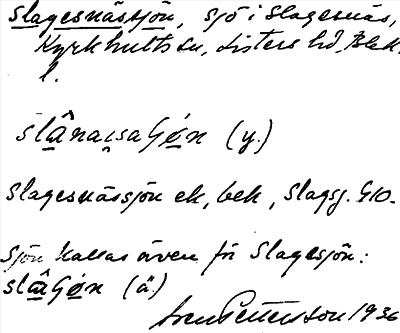 Slagesnässjön, sjö i Slagesnäs,
Kyrkhults sn, Listers hd, Blek.
l.
slânaʂsaGó̱n (y.)
Slagesnässjön ek, bek, Slagsj. G10-
Sjön kallas även för Slagesjön:
slâGó̱n (ä.)
Sven Petterson 1936